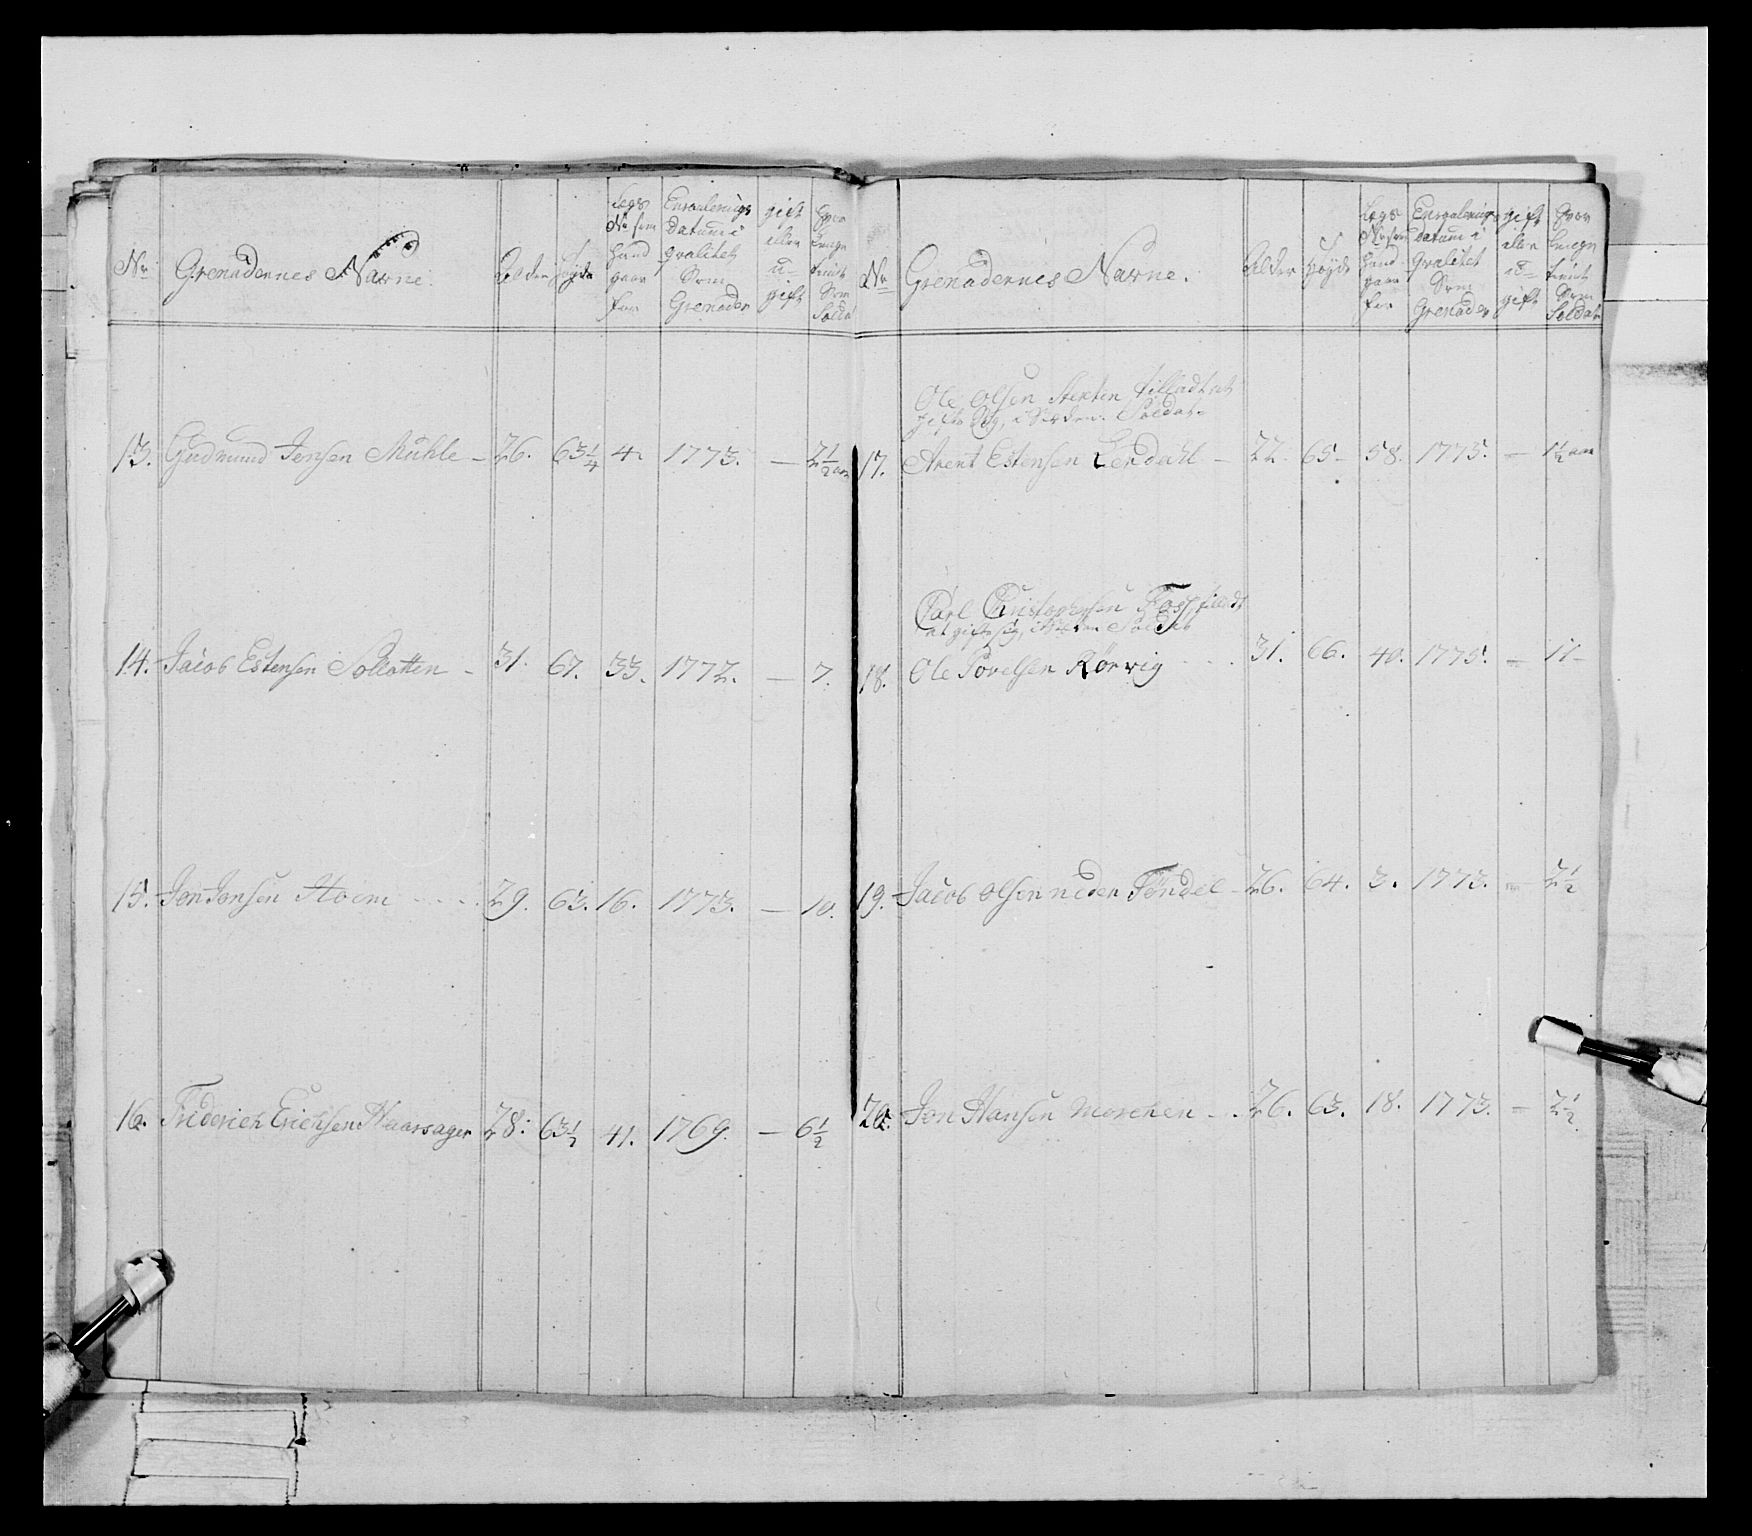 Nr Grenadernes Navne. Alder Høyde Legs No som hand gaar for Enroulerings datum i qvalitet Som Grenader gift eller u- gift Hvor længe tient Som Soldat
13. Gudmund Jensen Muhle – 26. 63 1/4 4. 1773. — 2 1/2 aar
14. Jacob Estensen Solliotten – 31. 67. 33. 1772. — 7.
15. Jon Jonsen Hoem - - - - 29. 63. 16. 1773. — 10.
16. Friderich Erichsen Haarsager 28. 63 1/2 41. 1769. — 6 1/2
Nr Grenadernes Navne. Alder Høyde Legs No som hand gaar for Enroulerings datum i qvalitet Som Grenader gift eller u- gift Hvor længe tient Som Soldat
Ole Olsen tilladt at
gifte sig, Soldat.
17. Arent Estensen Lerdahl – 22. 65 – 58. 1775. — 1 1/2 aar
Carl Christophersen Foss, tilladt
at gifte sig, Soldat
18. Ole Povelsen Rørvig - - - 31. 66. 40. 1775. — 11 –
19. Jacob Olsen neder Tøndel – 26. 64. 3. 1773. — 2 1/2
20. Jon Hansen Merchen - . 26. 63. 18. 1773. — 2 1/2